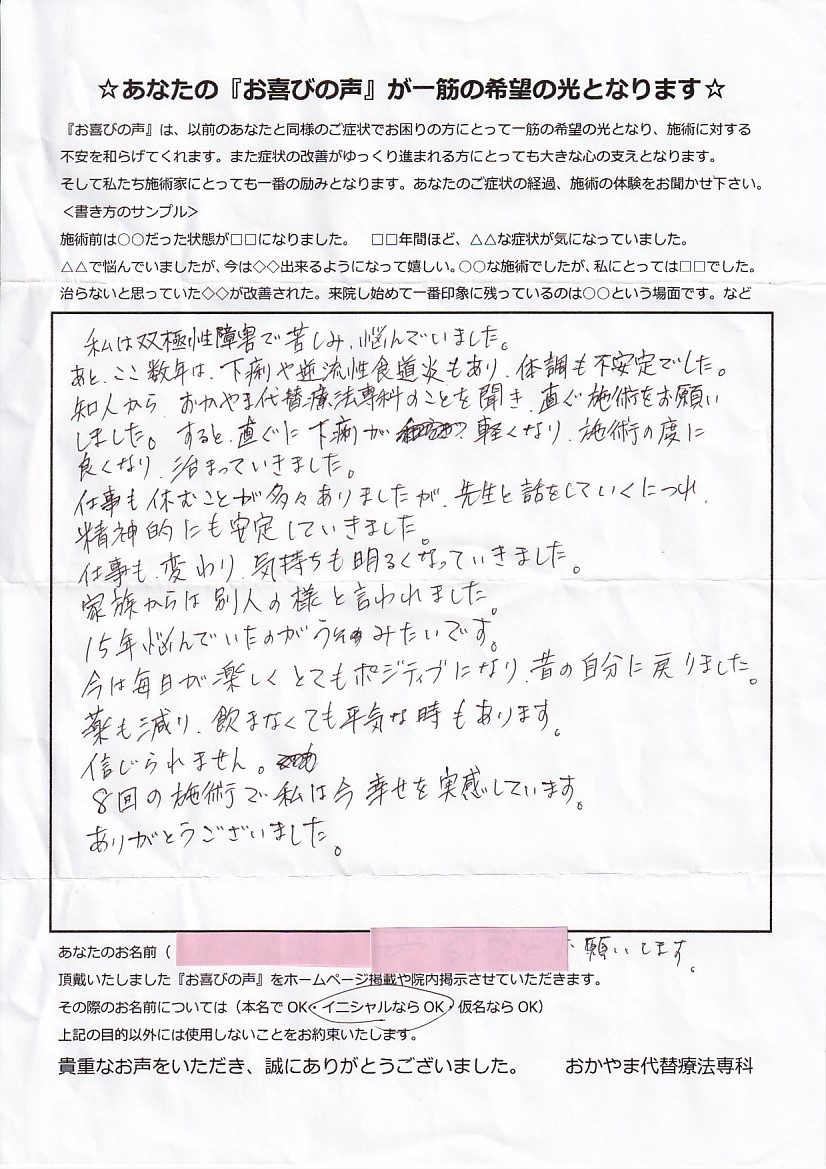 ☆あなたの『お喜びの声』が一筋の希望の光となります☆
『お喜びの声』は、以前のあなたと同様のご症状でお困りの方にとって一筋の希望の光となり、施術に対する
不安を和らげてくれます。また症状の改善がゆっくり進まれる方にとっても大きな心の支えとなります。
そして私たち施術家にとっても一番の励みとなります。あなたのご症状の経過、施術の体験をお聞かせ下さい。
＜書き方のサンプル＞
施術前は○○だった状態が□□になりました。 □□年間ほど、△△な症状が気になっていました。
△△で悩んでいましたが、今は◇◇出来るようになって嬉しい。○○な施術でしたが、私にとっては□□でした。
治らないと思っていた◇◇が改善された。来院し始めて一番印象に残っているのは○○という場面です。など
私は双極性障害で苦しみ、悩んでいました。
あと、ここ数年は、下痢や逆流性食道炎もあり、体調も不安定でした。
知人から、おかやま代替療法専科のことを聞き、直ぐ施術をお願い
しました。すると、直ぐに下痢が 軽くなり、施術の度に
良くなり、治まっていきました。
仕事も休むことが多々ありましたが、先生と話をしていくにつれ、
精神的にも安定していきました。
仕事も、変わり、気持ちも明るくなっていきました。
家族からは別人の様と言われました。
15年悩んでいたのがうそみたいです。
今は毎日が楽しくとてもポジティブになり、昔の自分に戻りました。
薬も減り、飲まなくても平気な時もあります。
信じられません。
8回の施術で私は今幸せを実感しています。
ありがとうございました。
あなたのお名前（ 願いします。
頂戴いたしました『お喜びの声』をホームページ掲載や院内掲示させていただきます。
その際のお名前については（本名でOK・イニシャルならOK・仮名ならOK）
上記の目的以外には使用しないことをお約束いたします。
貴重なお声をいただき、誠にありがとうございました。 おかやま代替療法専科